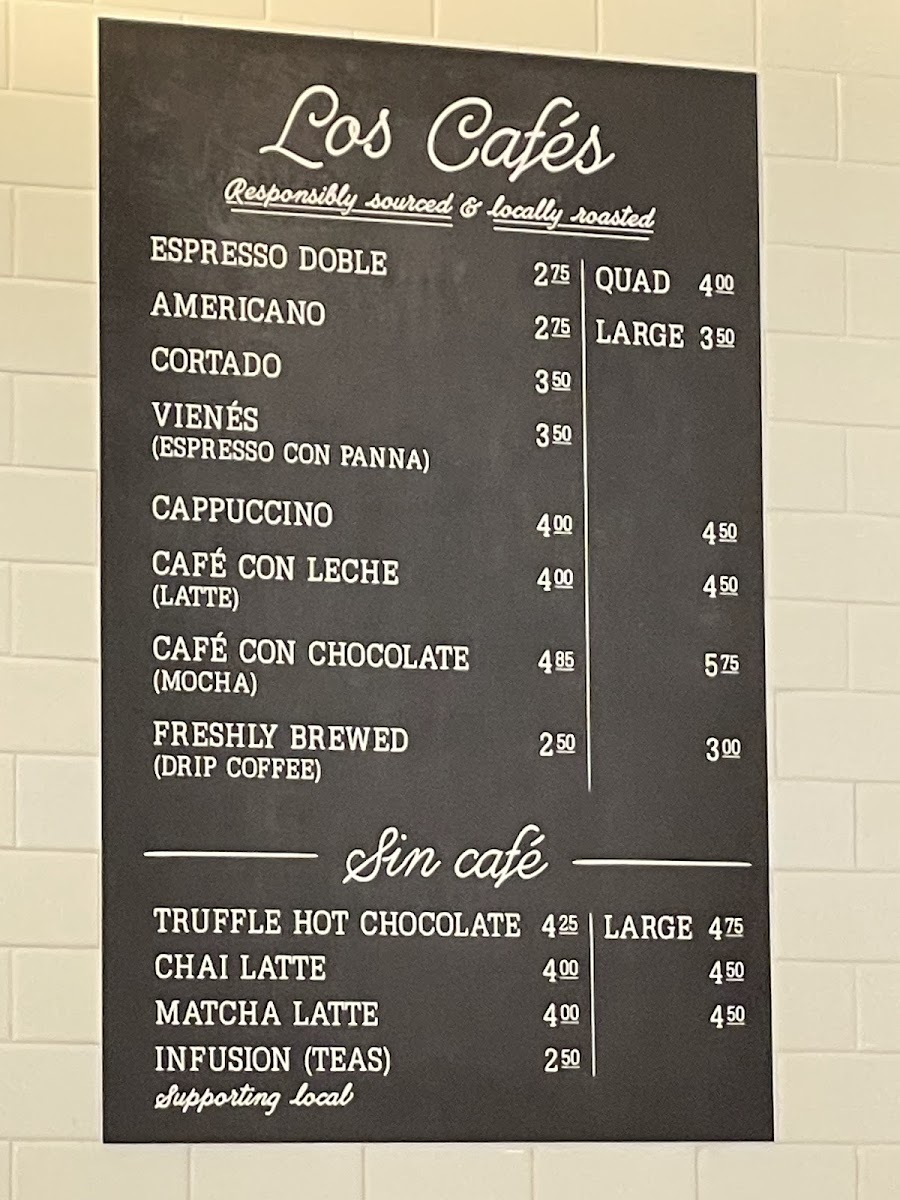 Los Cafés
Responsibly sourced & locally roasted
ESPRESSO DOBLE 2 75 QUAD 4 00
AMERICANO 2 75 LARGE 3 50
CORTADO 3 50
VIENÉS 3 50
(ESPRESSO CON PANNA)
CAPPUCCINO 4 00 4 50
CAFÉ CON LECHE 4 00 4 50
(LATTE)
CAFÉ CON CHOCOLATE 4 85 5 75
(MOCHA)
FRESHLY BREWED 2 50 3 00
(DRIP COFFEE)
Sin café
TRUFFLE HOT CHOCOLATE 4 25 LARGE 4 75
CHAI LATTE 4 00 4 50
MATCHA LATTE 4 00 4 50
INFUSION (TEAS) 2 50
Supporting local